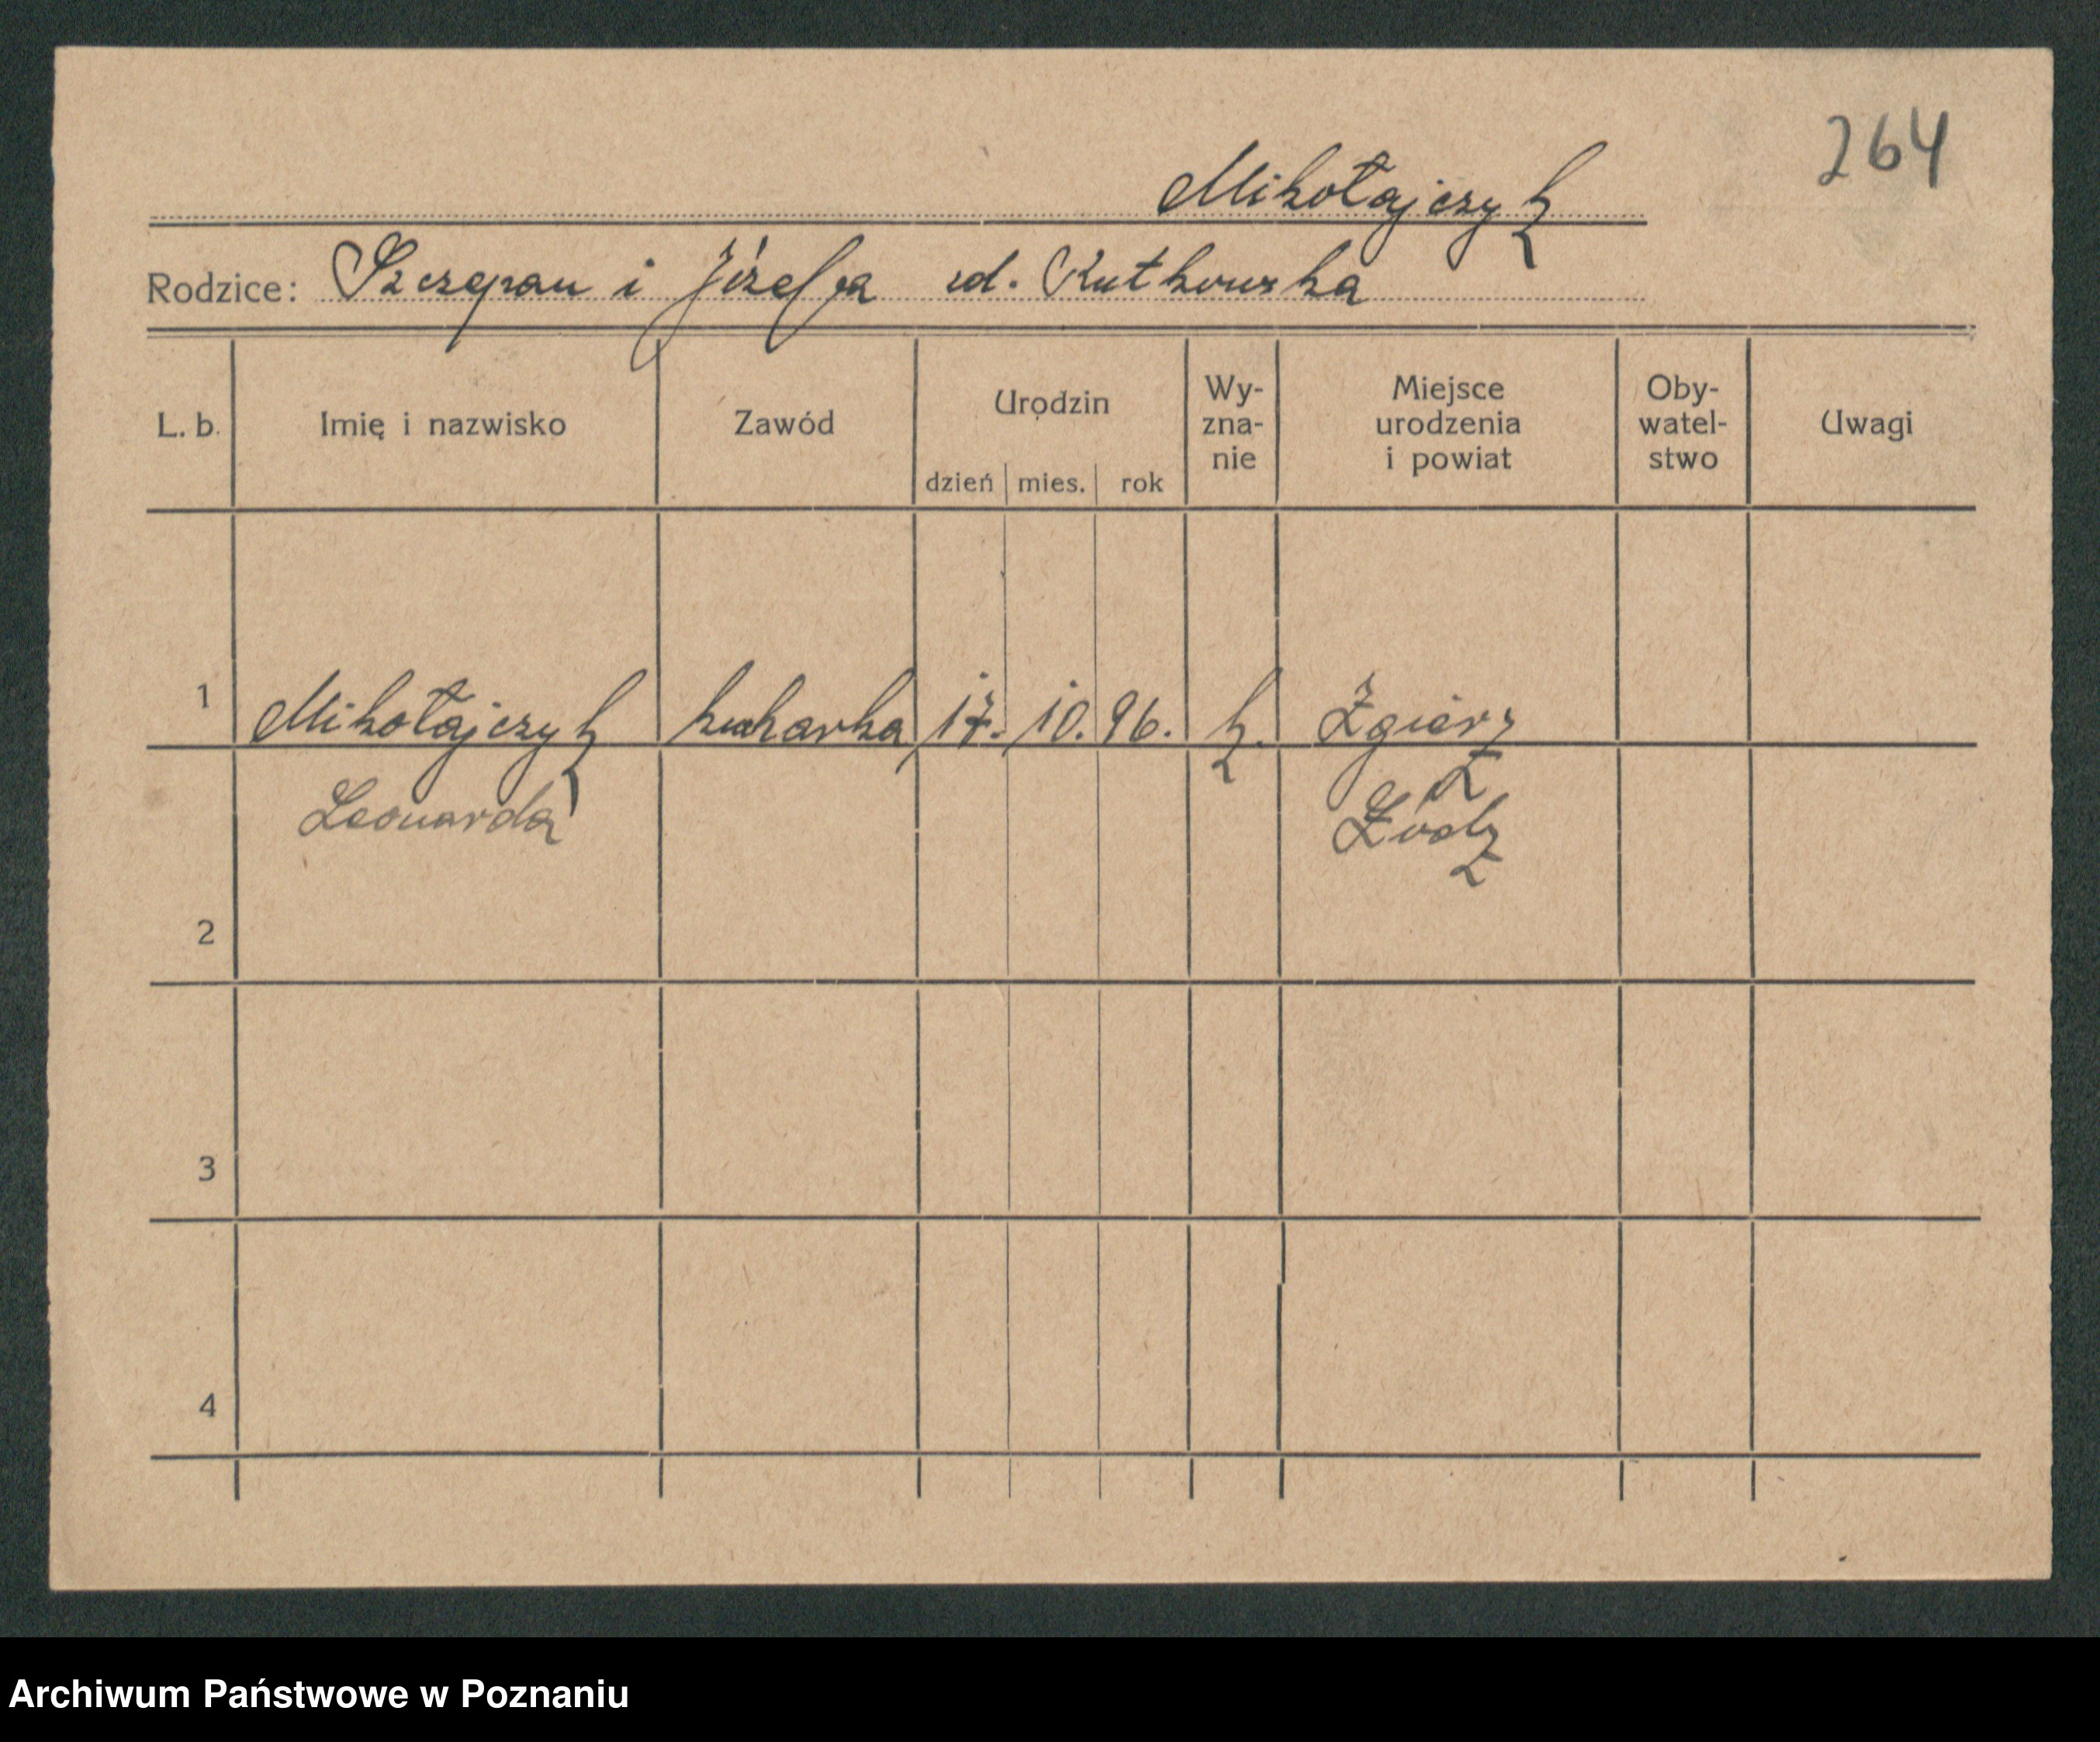 264
Mikołajczyk
Rodzice: Szczepan i Józefa zd. Rutkowska
L. b. Imię i nazwisko Zawód Urodzin dzień mies. rok Wy-znanie Miejsce urodzenia i powiat Oby-watel-stwo Uwagi
1 Mikołajczyk kucharka 17. 10. 96. k. Zgierz
Leonarda Łódź
2
3
4
Archiwum Państwowe w Poznaniu